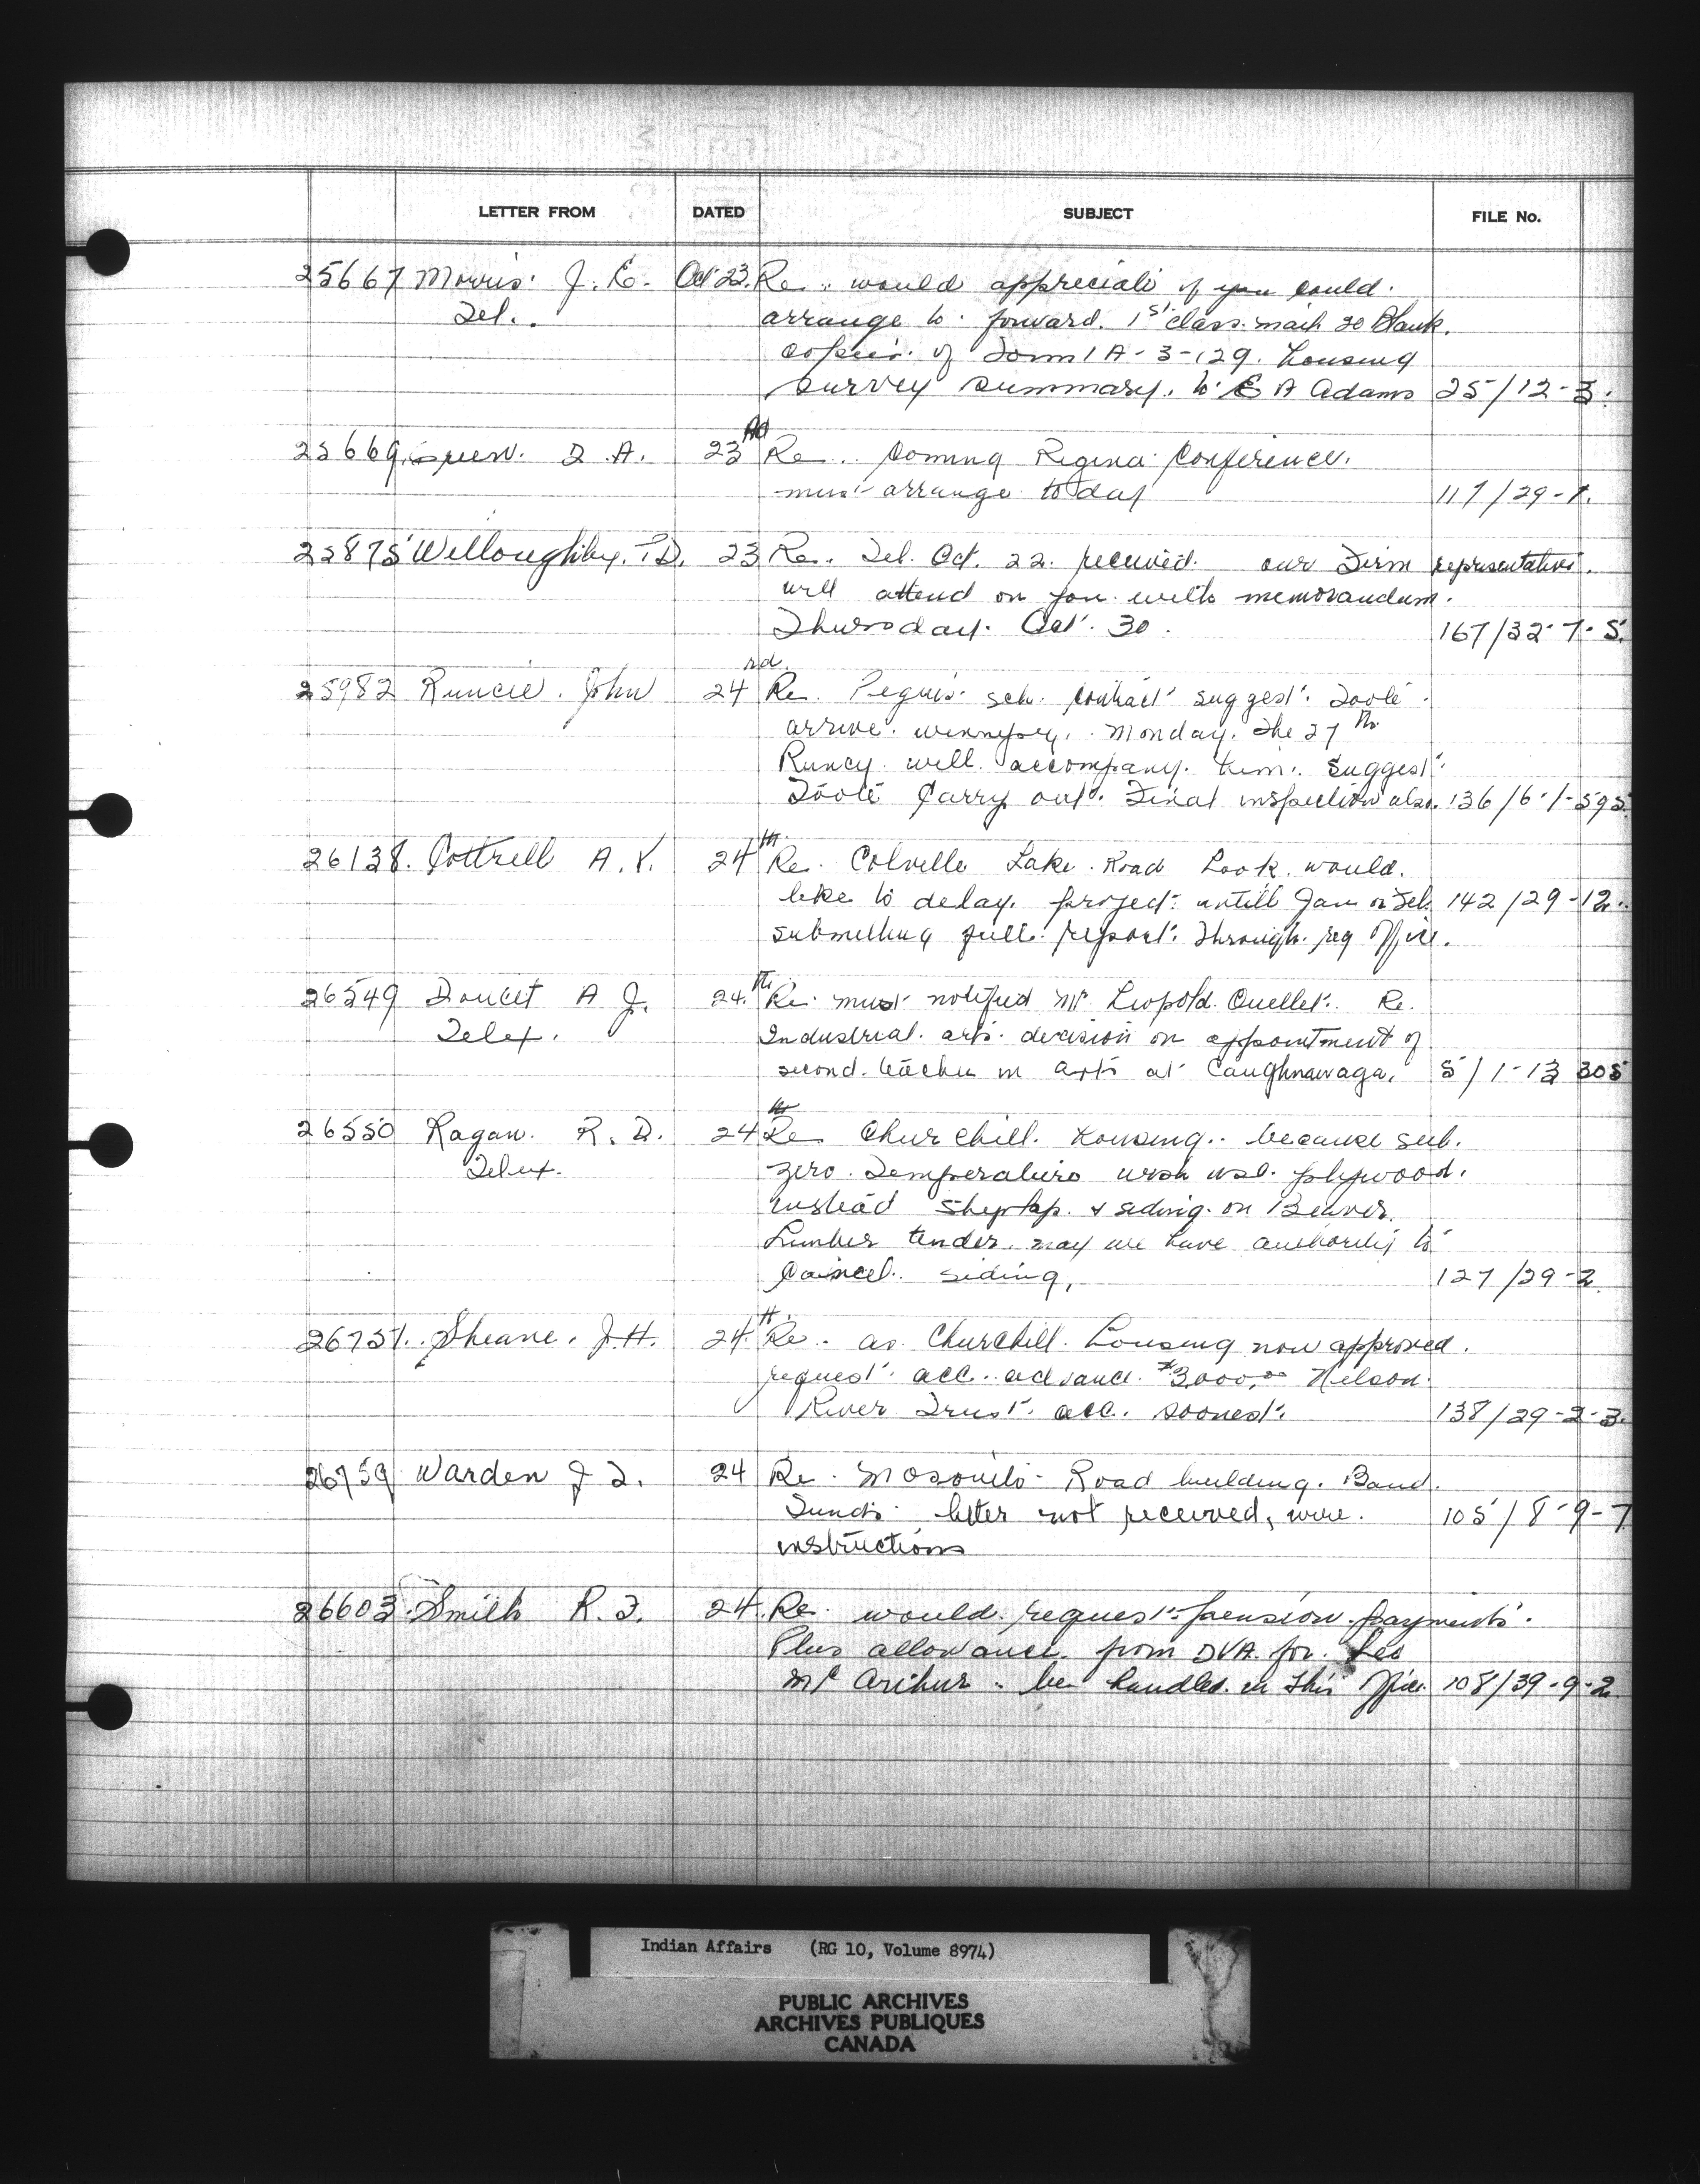 LETTER FROM DATED SUBJECT FILE No.
25667 Morris. J. E. Oct 23. Re. would appreciate if you could.
Tel. arrange to. forward. 1st class. mail 20 Blank.
copies. of Form IA-3-129. housing
survey summary. to E A Adams 25/12-3.
25669 D. A. 23rd Re. Coming Regina Conference.
must arrange today 117/29-1.
25875 Willoughby. T.D. 23 Re. Tel. Oct. 22. received. our Firm representative.
will attend on you with memorandum.
Thursday. Oct. 30. 167/32-7-5.
25982 Runcie. John 24 Re. Peguis. sch. contract suggest. Toole
arrive. winnipeg. Monday. the 27th
Runcy. will. accompany. him. Suggest.
Toole Carry out. Final inspection also. 136/6-1-595.
26138. Cottrell A. V. 24th Re. Colville Lake. Road Look. would.
like to delay. project. untill Jan or Feb. 142/29-12.
submitting full. report. through. reg Office.
26549 Doucet A J. 24.th Re. must notified Mr Leopold. Ouellet. Re.
Telex. Industrial. arts. decision on appointment of
second. teacher in arts at Caughnawaga. 5/1-13 305
26550 Ragan. R. D. 24th Re Churchill. Housing.. because sub.
Telex. zero. Temperatures wish use. plywood.
instead shiplap. & siding. on Beaver.
Lumber tender. may we have authority to
Cancel. siding. 127/29-2.
26751. Sheane. J.H. 24.th Re. as Churchill. Housing now approved.
request. acc. advance. $3,000.00 Nelson.
River Trust. acc. soonest. 138/29-2-3.
26759 Warden J T. 24 Re. Mosquito Road building. Band.
Funds. letter not received, wire. 105/8-9-7
instructions
26603. Smith R. F. 24. Re. would request pension. payments.
Plus allowance. from DVA. for. Leo
Mc Arthur. be handled in this Office. 108/39-9-2
Indian Affairs (RG 10, Volume 8974)
PUBLIC ARCHIVES
ARCHIVES PUBLIQUES
CANADA